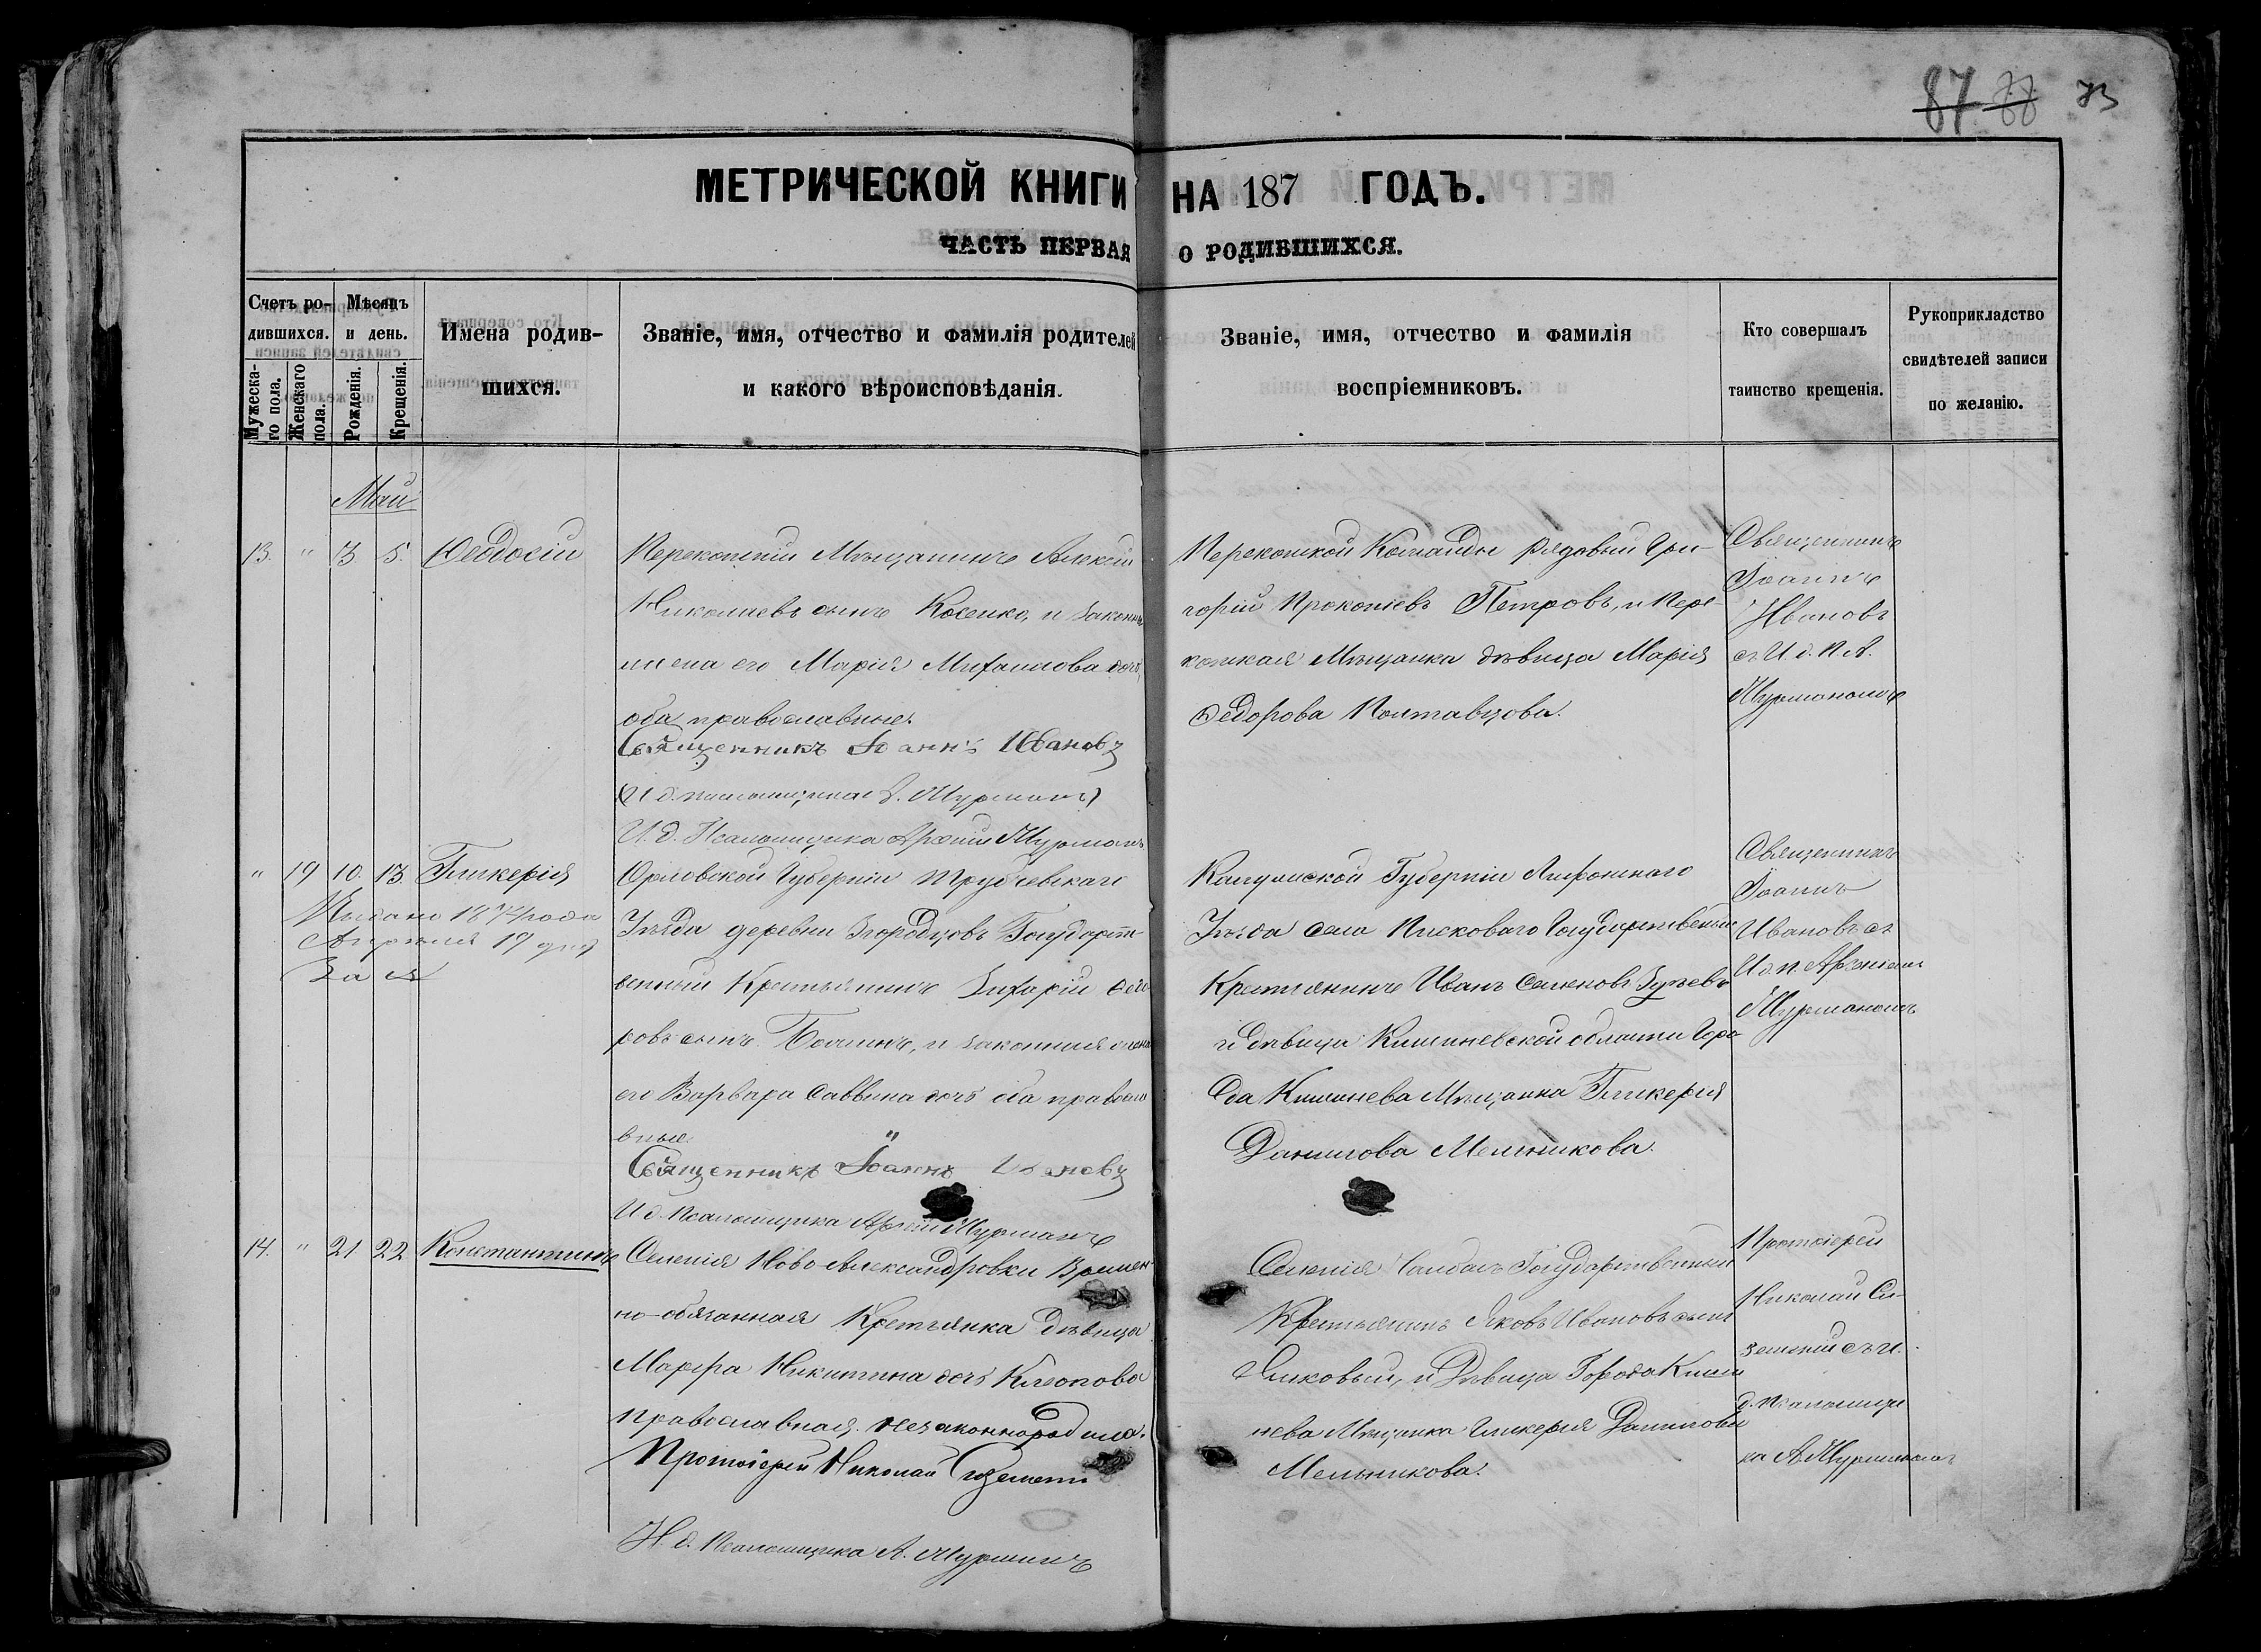 87 88 73
МЕТРИЧЕСКОЙ КНИГИ НА 187 ГОДЪ.
ЧАСТЬ ПЕРВАЯ О РОДИВШИХСЯ.
Счетъ ро-
дившихся.
Мужеска-
го пола.
Женскаго
пола.
Мѣсяцъ
и день.
Рожденія.
Крещенія.
Имена родив-
шихся.
Званіе, имя, отчество и фамилія родителей
и какого вѣроисповѣданія.
Званіе, имя, отчество и фамилія
воспріемниковъ.
Кто совершалъ
таинство крещенія.
Рукоприкладство
свидѣтелей записи
по желанію.
Май
13. " 3 5. Ѳеодосій
Перекопскій Мѣщанинъ Алексѣй
Николаевъ сынъ Косенко, и законная
жена его Марія Михаилова дочь,
оба православные.
Священникъ Іоаннъ Ивановъ
И. д. псаломщика А. Мурманъ
И. д. Псаломщика Арсеній Мурманъ
Перекопской Команды рядовый Гри-
горій Прокопіевъ Петровъ, и Пере-
копская Мѣщанка дѣвица Марія
Ѳедорова Полтавцова.
Священникъ
Іоаннъ
Ивановъ
съ И. д. П. А.
Мурманомъ
" 19 10. 13. Гликерія
Выдано 1874 года
Апреля 19 дня
За №
Орловской Губерніи Трубчевскаго
Уѣзда деревни Згородцовъ Государст-
венный Крестьянинъ Захарій Ѳедо-
ровъ сынъ, и законная жена
его Варвара Саввина дочь оба правосла-
вные.
Священникъ Іоаннъ Ивановъ
И. д. Псаломщика Арсеній Мурманъ
Калужской Губерніи
Уѣзда села Пискового Государственный
Крестьянинъ Иванъ Зуевъ
и дѣвица Кишиневской области Горо
да Кишинева Мѣщанка Гликерія
Данилова Мельникова.
Священникъ
Іоаннъ
Ивановъ съ
И. д. п. Арсеніемъ
Мурманомъ
14. " 21 22 Константинъ
Селенія Ново-Александровки Времен-
но-обязанная Крестьянка дѣвица
Марфа Никитина дочь Клопова
православная. незаконнород
Протоіерей Николай Сиземскій
И. д. Псаломщика А. Мурманъ
Селенія Государственный
Крестьянинъ Яковъ Ивановъ сынъ
и Дѣвица Города Киши
нева Мѣщанка Гликерія Данилова
Мельникова.
Протоіерей
Николай Си-
земскій съ И.
д. Псаломщи
ка А. Мурманомъ